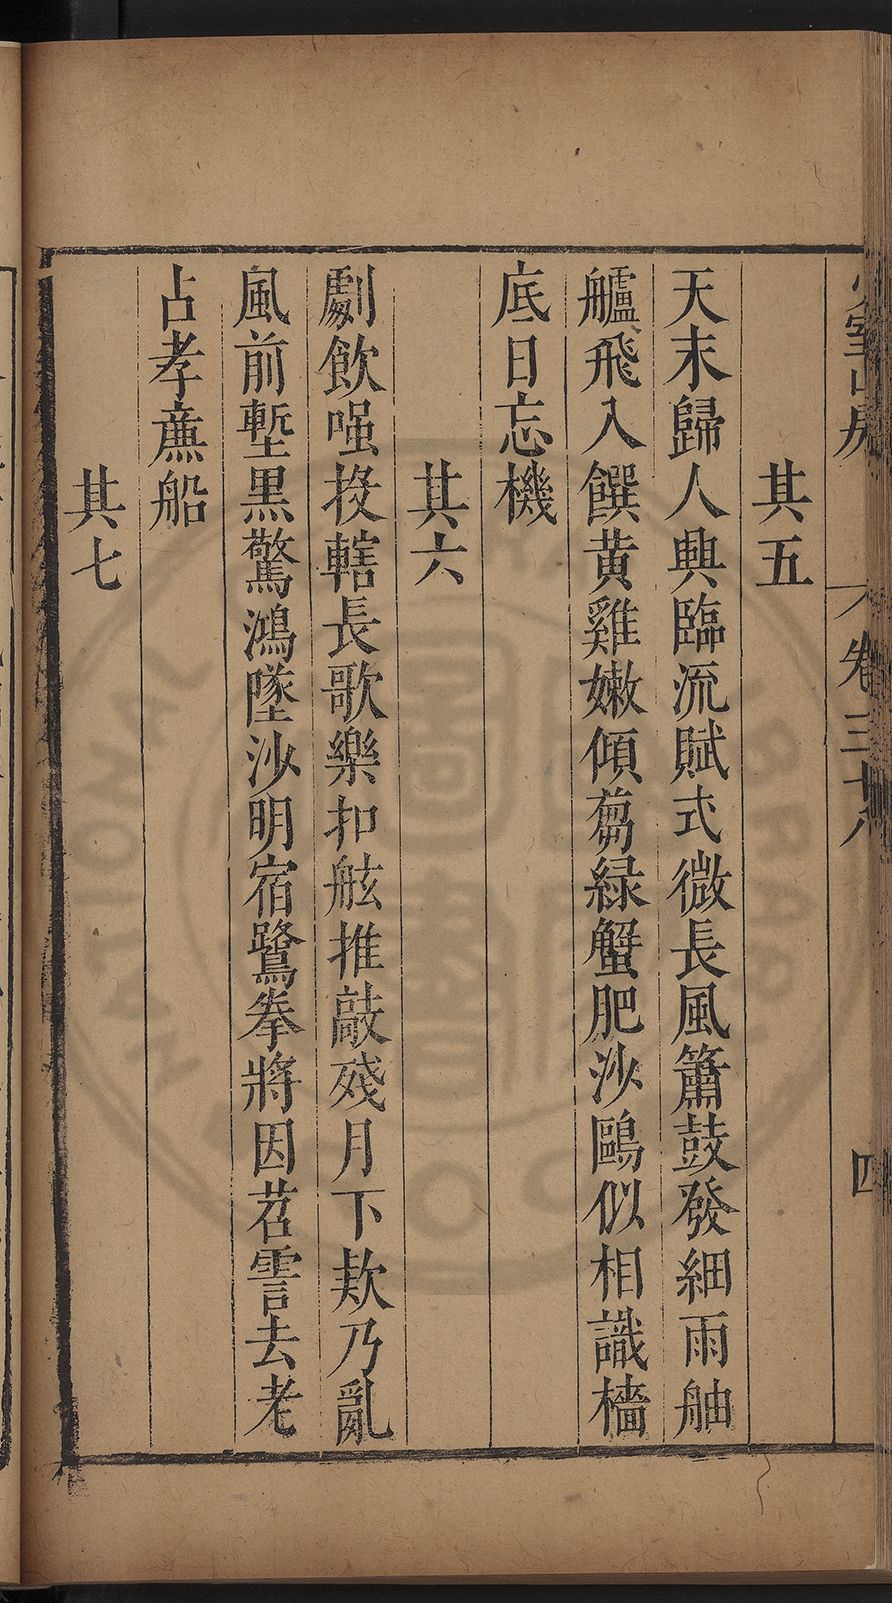 少室山房
卷三十八
四
其五
天末歸人興臨流賦式微長風簫鼓發細雨舳
艫飛入饌黄雞嫩傾蒭緑蟹肥沙鷗似相識檣
底日忘機
其六
劇飲嗤投轄長歌樂扣舷推敲殘月下欵乃亂
風前塹黒驚鴻墜沙明宿鷺拳將因苕霅去老
占孝亷船
其七